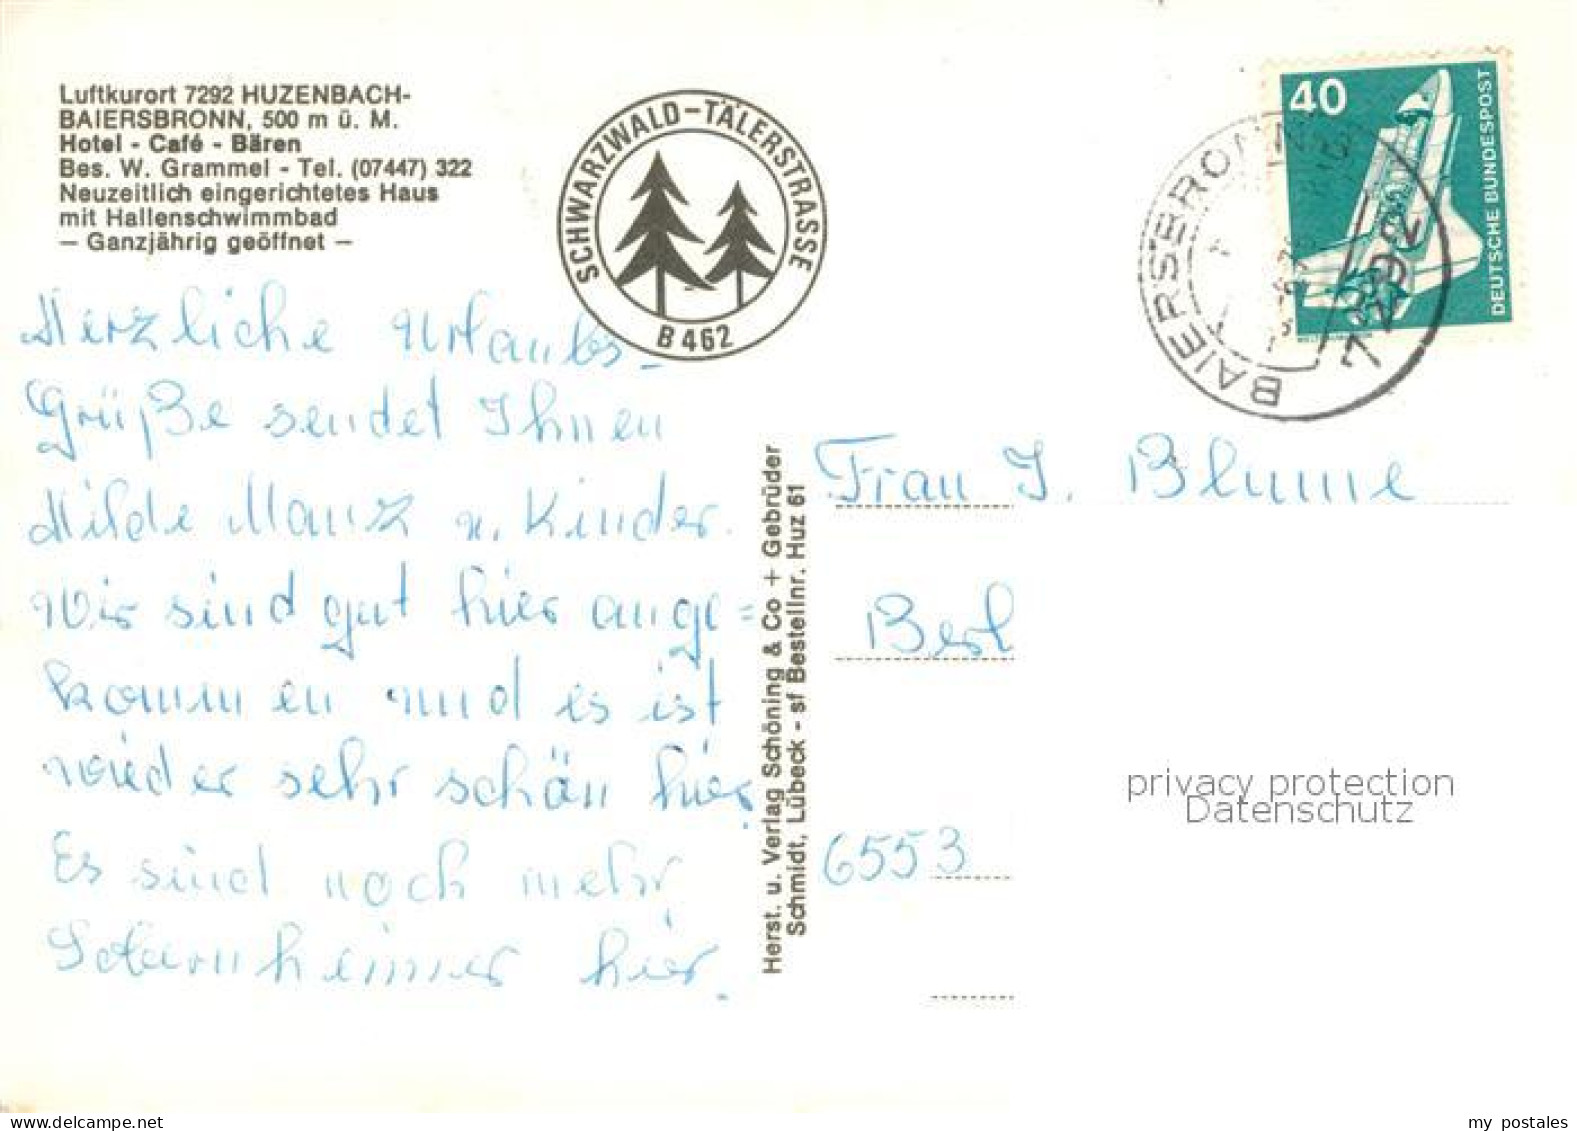 Luftkurort 7292 HUZENBACH-
BAIERSBRONN, 500 m ü. M.
Hotel - Café - Bären
Bes. W. Grammel - Tel. (07447) 322
Neuzeitlich eingerichtetes Haus
mit Hallenschwimmbad
— Ganzjährig geöffnet —
SCHWARZWALD-TÄLERSTRASSE
B 462
40
DEUTSCHE BUNDESPOST
BAIERSBRONN
7292
Herzliche Urlaubs-
Grüße sendet Ihnen
Hilde Manz u. Kinder.
Wir sind gut hier ange=
kommen und es ist
wieder sehr schön hier.
Es sind noch mehr
hier.
Herst. u. Verlag Schöning & Co + Gebrüder
Schmidt, Lübeck - sf Bestellnr. Huz 61
Frau J. Blume
6553
privacy protection
Datenschutz
my postales